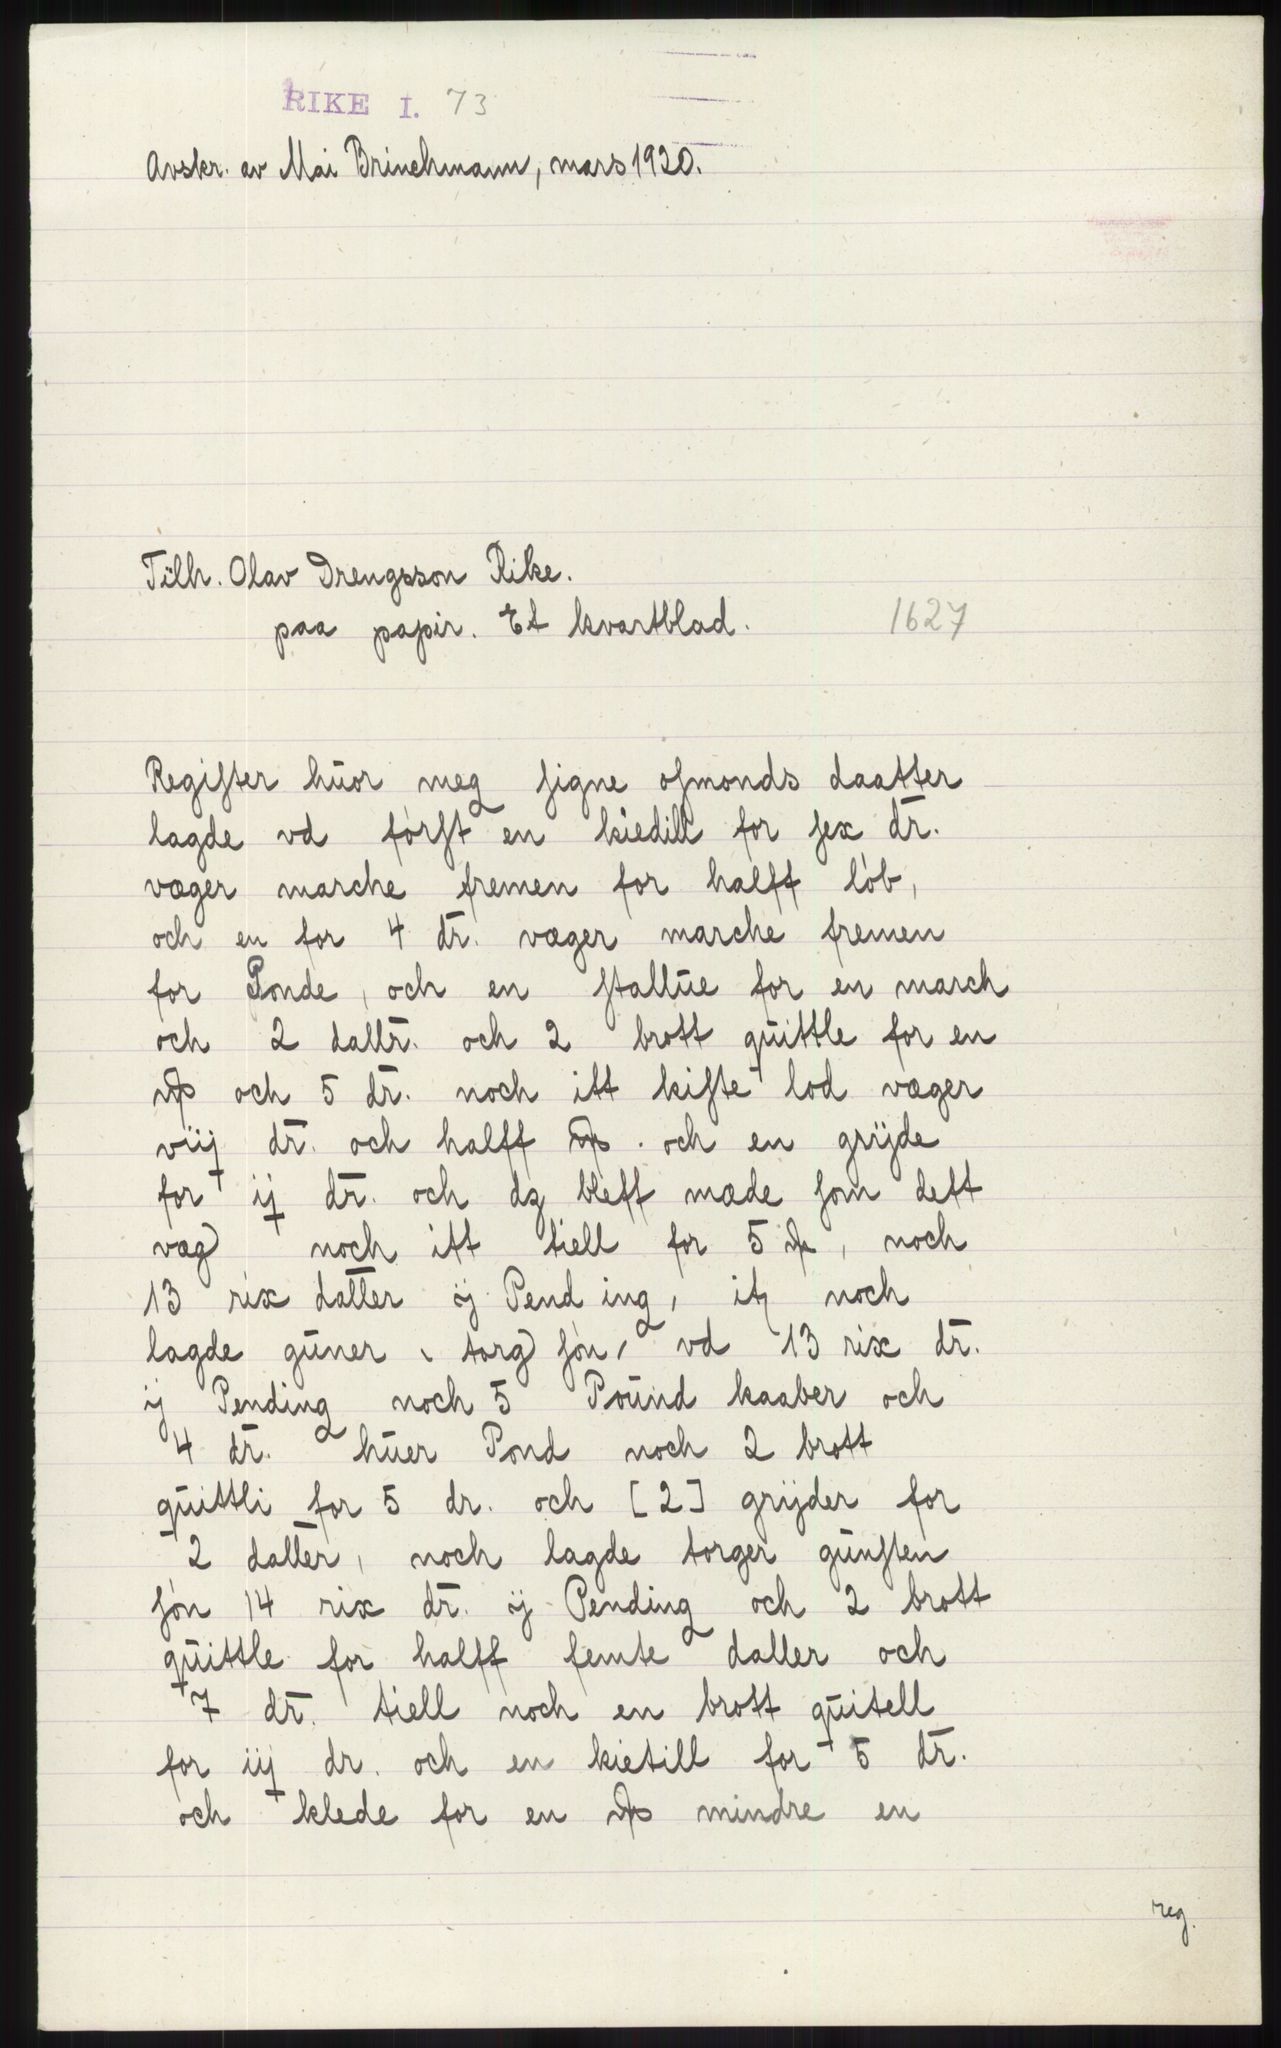 RIKE I. 73
Avskr. av Mai Brinchmann, mars 1920.
Tilh. Olav Drengsson Rike.
paa papir. Et kvartblad. 1627
Regiſter huor meg ſigne oſmonds daatter
lagde vd førſt en kiedill for ſex dr.
væger marche fremen for halff løb,
och en for 4 dr. væger marche fremen
for Ponde, och en ſtallue for en march
och 2 dallr. och 2 brott quittle for en
och 5 dr. noch itt kiſte lod væger
viij dr. och halff . och en grÿde
for ij dr. och dz bleff mæde ſom deft
væg noch itt tiell for 5 , noch
13 rix daller ij Pending, itz noch
lagde guner torg ſøn, vd 13 rix dr.
ij Pending noch 5 Pound kaaber och
4 dr. huer Pond noch 2 brott
quittli for 5 dr. och [2] grÿder for
2 daller, noch lagde torger gunſten
ſøn 14 rix dr. ij Pending och 2 brott
quittle for halff femte daller och
7 dr. tiell noch en brott quitell
for iij dr. och en kietill for 5 dr.
och klede for en mindre en
reg.